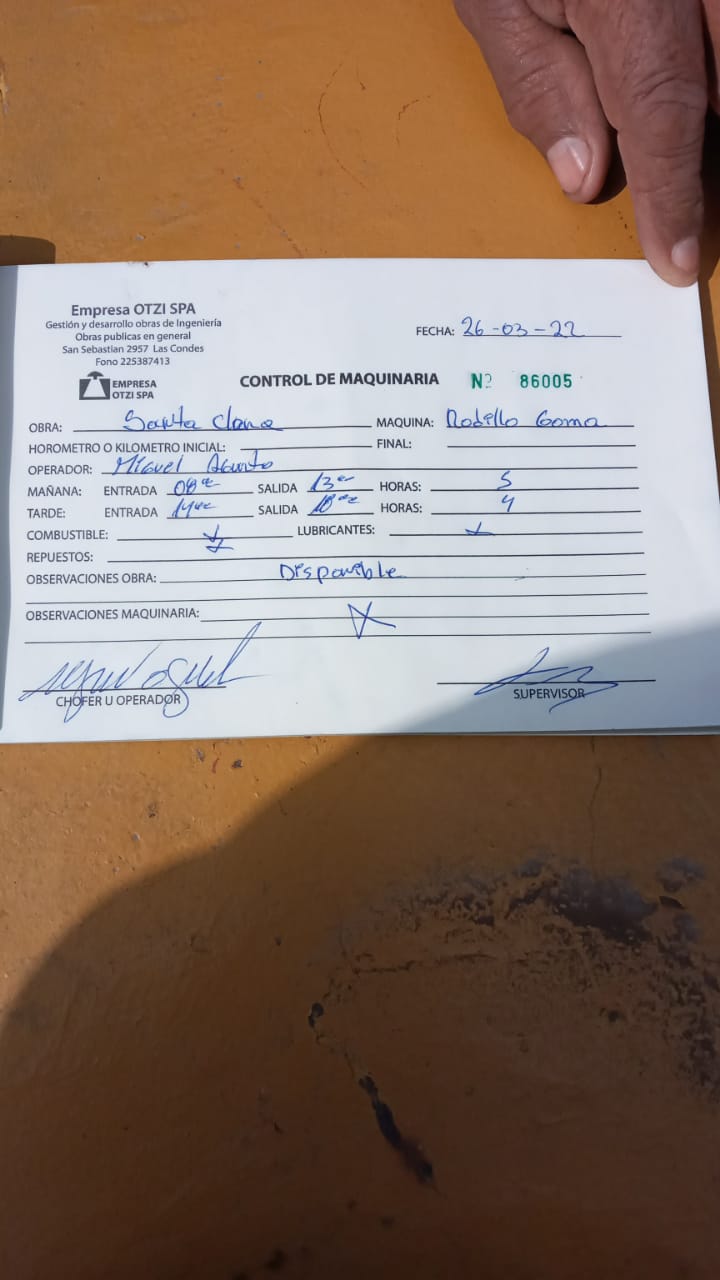 Empresa OTZI SPA
Gestión y desarrollo obras de Ingeniería
Obras publicas en general
San Sebastian 2957 Las Condes
Fono 225387413
FECHA: 26-03-22
EMPRESA
OTZI SPA
CONTROL DE MAQUINARIA Nº 86005
OBRA: Santa Clara MAQUINA: Rodillo Goma
HOROMETRO O KILOMETRO INICIAL: FINAL:
OPERADOR: Miguel
MAÑANA: ENTRADA 08 SALIDA 13 HORAS: 5
TARDE: ENTRADA 14 SALIDA 18 HORAS: 4
COMBUSTIBLE: LUBRICANTES:
REPUESTOS:
OBSERVACIONES OBRA: Disponible
OBSERVACIONES MAQUINARIA:
CHOFER U OPERADOR SUPERVISOR